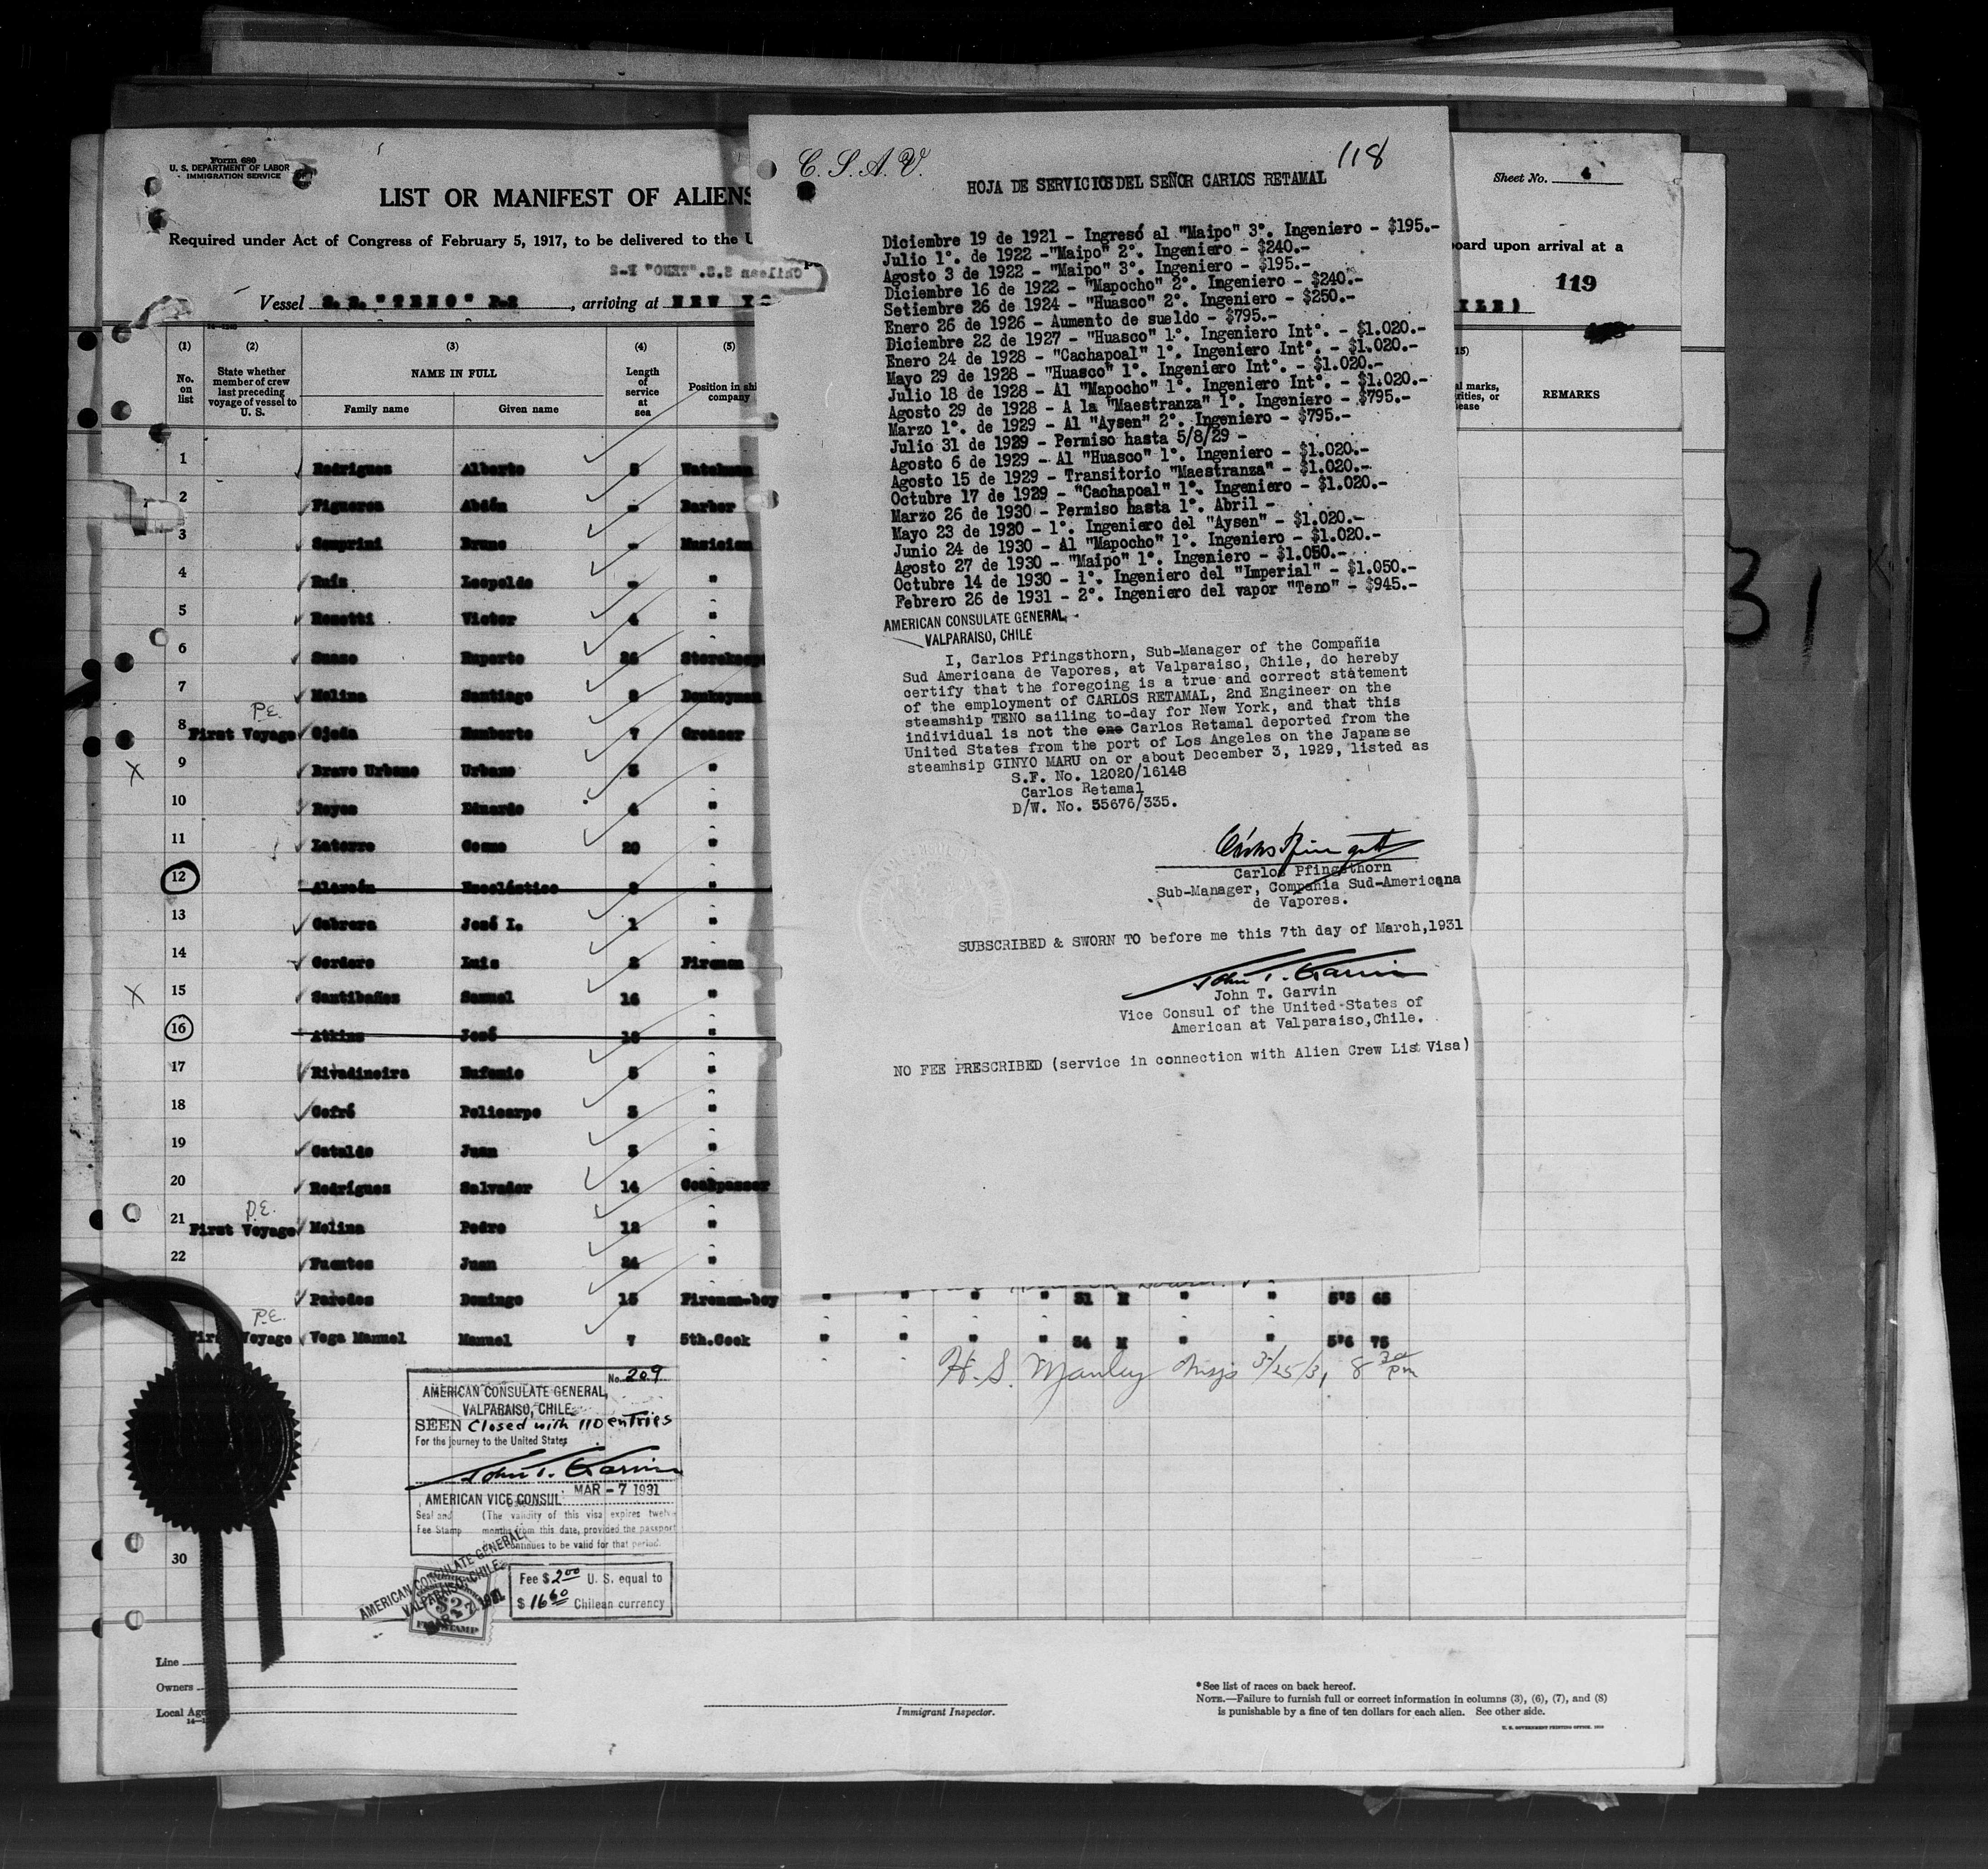 Form 680
U. S. DEPARTMENT OF LABOR
IMMIGRATION SERVICE
LIST OR MANIFEST OF ALIENS
Required under Act of Congress of February 5, 1917, to be delivered to the U
Chilean S.S. "TENO" R-2
Vessel S. S. "TENO" R-2, arriving at NEW YO
Sheet No. 4
board upon arrival at a
119
ILE)
C. S. A. V.
118
HOJA DE SERVICIOS DEL SEÑOR CARLOS RETAMAL
Diciembre 19 de 1921 - Ingresó al "Maipo" 3°. Ingeniero - $195.-
Julio 1°. de 1922 -"Maipo" 2°. Ingeniero - $240.-
Agosto 3 de 1922 - "Maipo" 3°. Ingeniero - $195.-
Diciembre 16 de 1922 - "Mapocho" 2°. Ingeniero - $240.-
Setiembre 26 de 1924 - "Huasco" 2°. Ingeniero - $250.-
Enero 26 de 1926 - Aumento de sueldo - $795.-
Diciembre 22 de 1927 - "Huasco" 1°. Ingeniero Int°. - $1.020.-
Enero 24 de 1928 - "Cachapoal" 1°. Ingeniero Int°. - $1.020.-
Mayo 29 de 1928 - "Huasco" 1°. Ingeniero Int°. - $1.020.-
Julio 18 de 1928 - Al "Mapocho" 1°. Ingeniero Int°. - $1.020.-
Agosto 29 de 1928 - A la "Maestranza" 1°. Ingeniero - $795.-
Marzo 1°. de 1929 - Al "Aysen" 2°. Ingeniero - $795.-
Julio 31 de 1929 - Permiso hasta 5/8/29 -
Agosto 6 de 1929 - Al "Huasco" 1°. Ingeniero - $1.020.-
Agosto 15 de 1929 - Transitorio "Maestranza" - $1.020.-
Octubre 17 de 1929 - "Cachapoal" 1°. Ingeniero - $1.020.-
Marzo 26 de 1930 - Permiso hasta 1°. Abril -
Mayo 23 de 1930 - 1°. Ingeniero del "Aysen" - $1.020.-
Junio 24 de 1930 - Al "Mapocho" 1°. Ingeniero - $1.020.-
Agosto 27 de 1930 - "Maipo" 1°. Ingeniero - $1.050.-
Octubre 14 de 1930 - 1°. Ingeniero del "Imperial" - $1.050.-
Febrero 26 de 1931 - 2°. Ingeniero del vapor "Teno" - $945.-
AMERICAN CONSULATE GENERAL,
VALPARAISO, CHILE
I, Carlos Pfingsthorn, Sub-Manager of the Compañia
Sud Americana de Vapores, at Valparaiso, Chile, do hereby
certify that the foregoing is a true and correct statement
of the employment of CARLOS RETAMAL, 2nd Engineer on the
steamship TENO sailing to-day for New York, and that this
individual is not the one Carlos Retamal deported from the
United States from the port of Los Angeles on the Japanese
steamhsip GINYO MARU on or about December 3, 1929, listed as
S.F. No. 12020/16148
Carlos Retamal
D/W. No. 55676/335.
Carlos Pfingsthorn
Sub-Manager, Compañia Sud-Americana
de Vapores.
SUBSCRIBED & SWORN TO before me this 7th day of March,1931
John T. Garvin
John T. Garvin
Vice Consul of the United States of
American at Valparaiso,Chile.
NO FEE PRESCRIBED (service in connection with Alien Crew List Visa)
(1) (2) (3) (4) (5) 15)
No. on list
State whether member of crew last preceding voyage of vessel to U. S.
NAME IN FULL
Family name Given name
Length of service at sea
Position in shi company
al marks, rities, or ease
REMARKS
1 Rodriguez Alberto 5 Watchman
2 Figueroa Abdón - Barber
3 Semprini Bruno - Musician
4 Ruiz Leopoldo - "
5 Rosetti Victor 4 "
6 Suazo Ruperto 26 Storekeepe
7 Molina Santiago 8 Donkeyman
P.E.
8 First Voyage Ojeda Humberto 7 Greaser
X 9 Bravo Urbano Urbano 5 "
10 Reyes Eduardo 4 "
11 Latorre Cosme 20 "
12 Alarcón Escolástico "
13 Cabrera José L. 1 "
14 Cordero Luis 2 Fireman
X 15 Santibañez Samuel 16 "
16 Atkins José "
17 Rivadineira Eufemio 5 "
18 Cofré Policarpo 3 "
19 Cataldo Juan 3 "
20 Rodríguez Salvador 14 Coalpasser
P.E.
21 First Voyage Molina Pedro 12 "
22 Fuentes Juan 24 "
Paredes Domingo 15 Firemen-boy " " " " 31 M " " 5'5 65
P.E.
First Voyage Vega Manuel Manuel 7 5th.Cook " " " " 34 M " " 5'6 75
H. S. Manley 3/25/31 8 30 pm
31
No. 209
AMERICAN CONSULATE GENERAL,
VALPARAISO, CHILE
SEEN Closed with 110 entries
For the journey to the United States
John T. Garvin
MAR - 7 1931
AMERICAN VICE CONSUL
Seal and Fee Stamp
(The validity of this visa expires twelve
months from this date, provided the passport
continues to be valid for that period.
AMERICAN CONSULATE GENERAL,
VALPARAISO, CHILE
MAR 7 1931
$2
FEE STAMP
Fee $ 2.00 U. S. equal to
$ 16.60 Chilean currency
30
Line
Owners
Local Age
Immigrant Inspector.
*See list of races on back hereof.
NOTE.—Failure to furnish full or correct information in columns (3), (6), (7), and (8)
is punishable by a fine of ten dollars for each alien. See other side.
U. S. GOVERNMENT PRINTING OFFICE